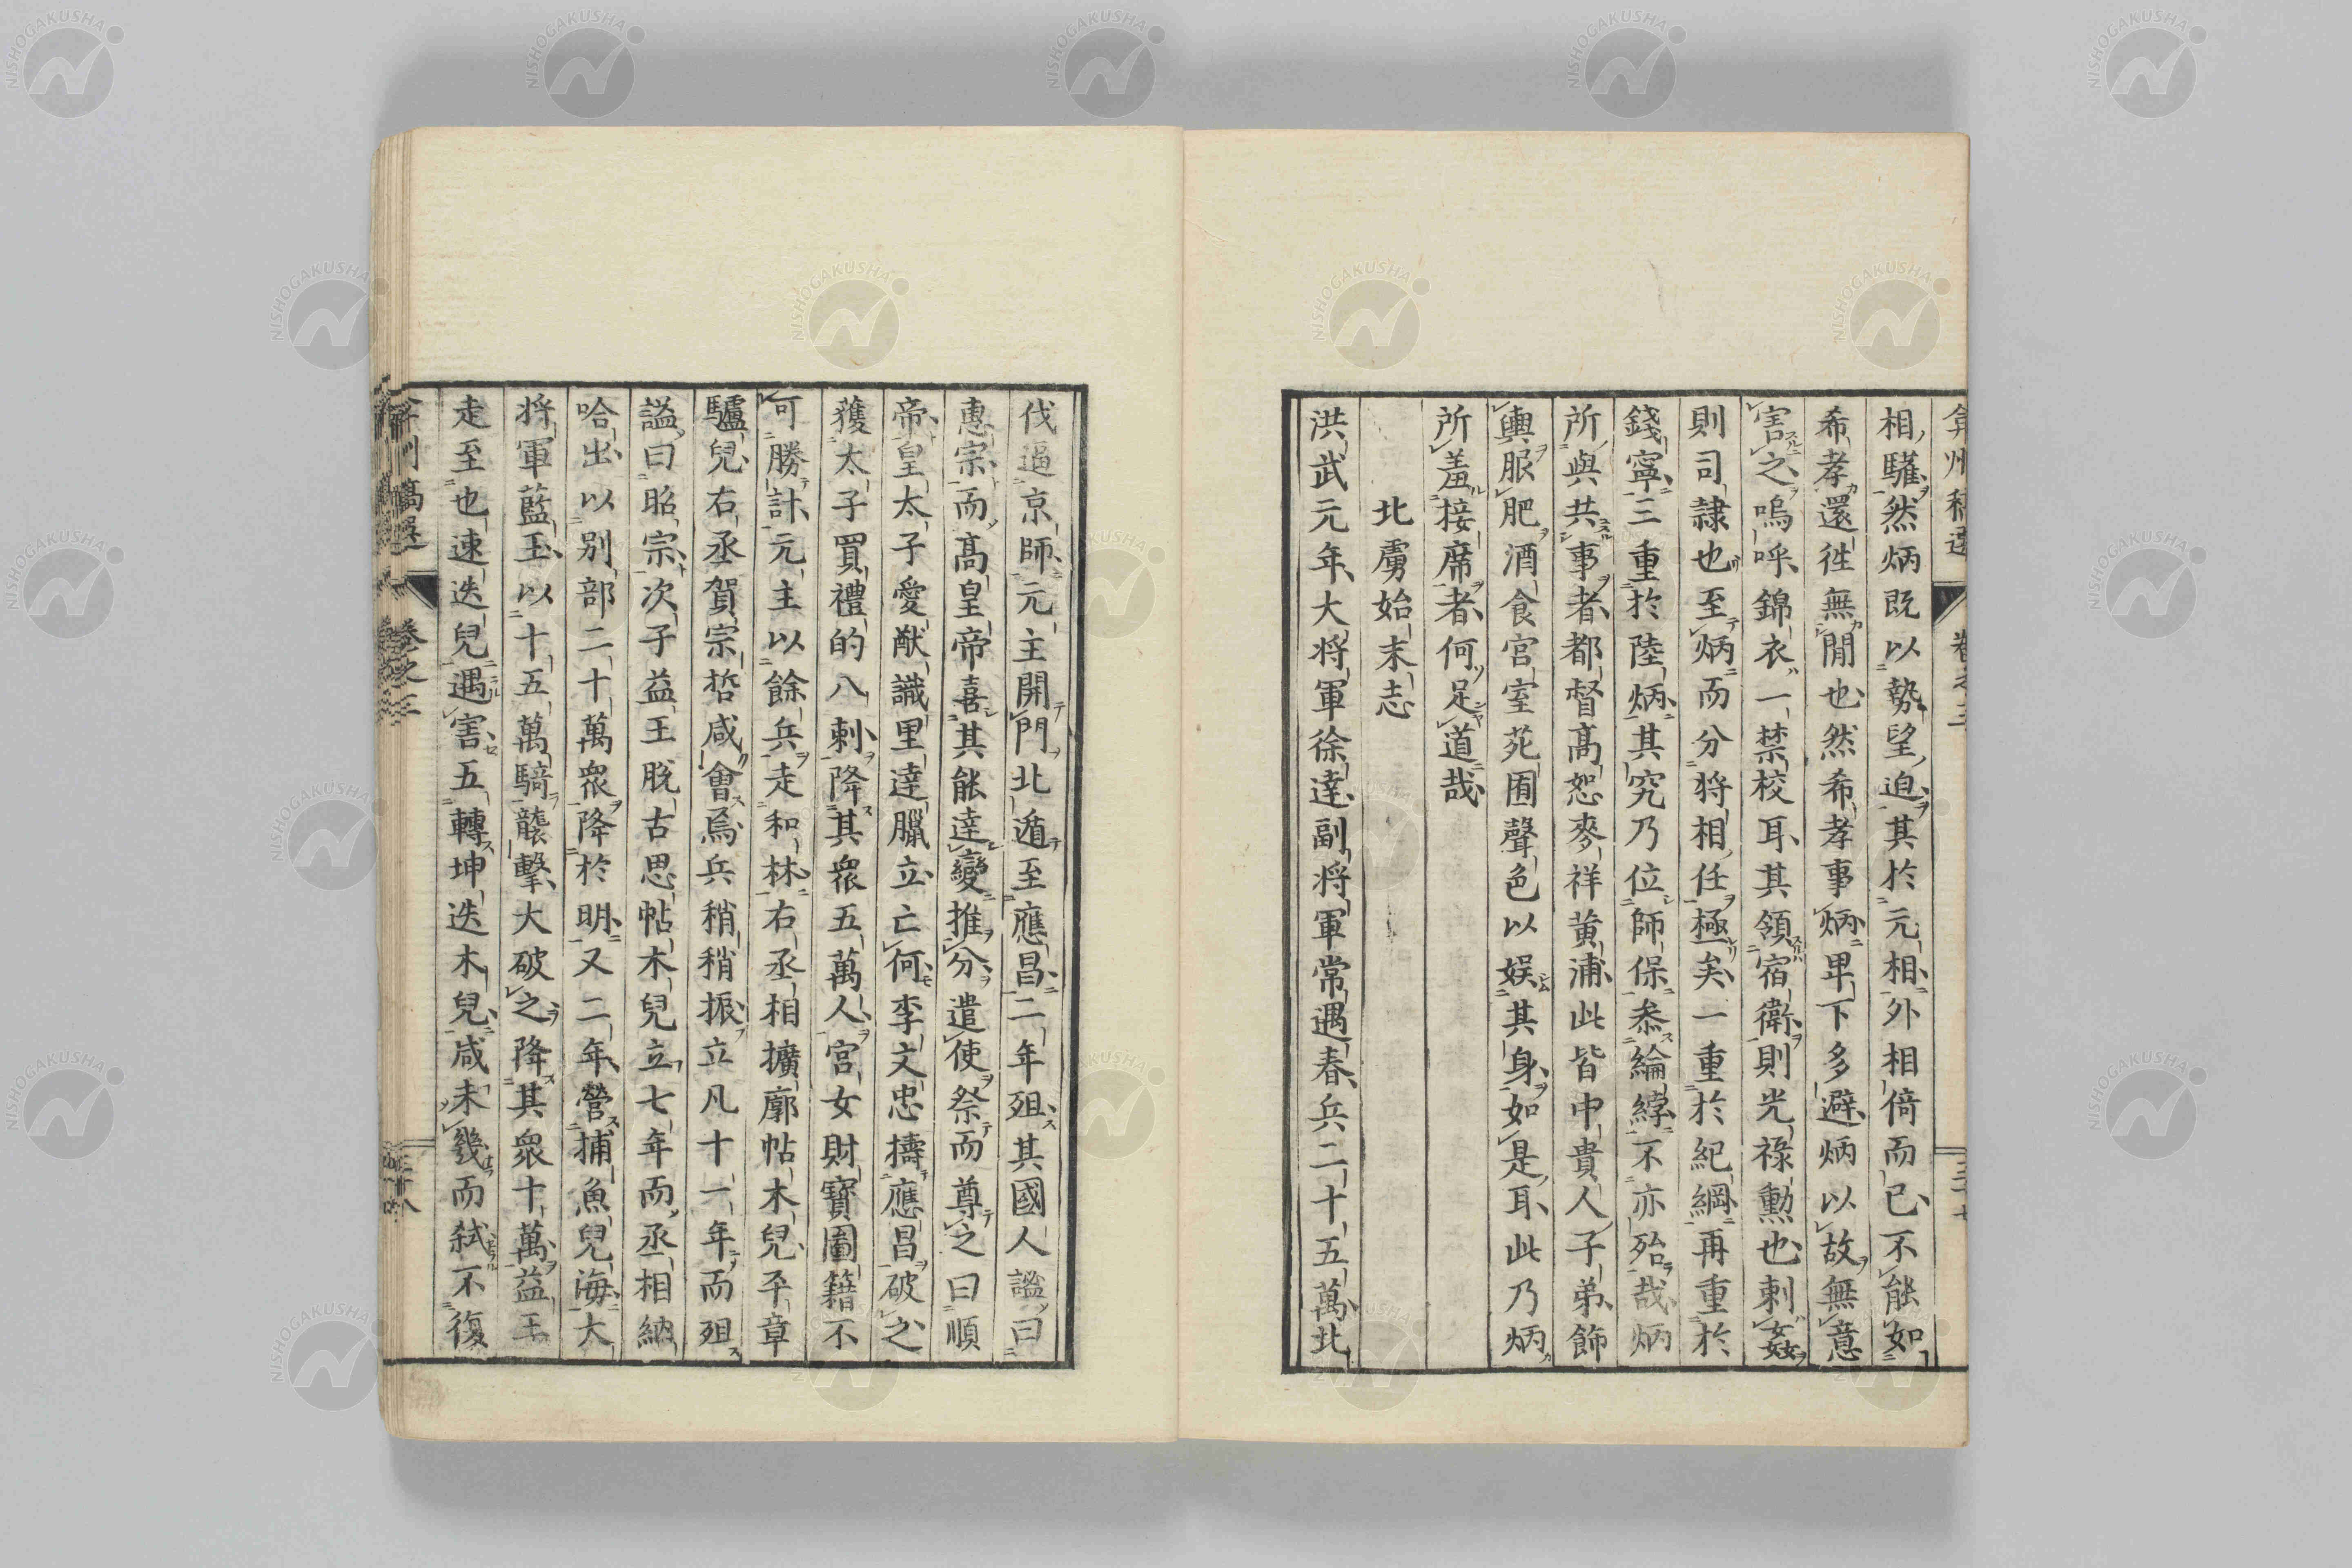 弇州稿選 卷之三 三十七
相驩然炳既以勢望迫其於元相外相倚而已不能如
希孝還徃無間也然希孝事炳卑下多避炳以故無意
害之嗚呼錦衣一禁校耳其領宿衛則光祿勳也刺姦
則司隷也至炳而分将相任極矣一重於紀綱再重於
錢寧三重於陸炳其究乃位師保叅綸綍不亦殆哉炳
所與共事者都督高恕麥祥黄浦此皆中貴人子弟飾
輿服肥酒食宫室苑囿聲色以娱其身如是耳此乃炳
所羞接席者何足道哉
北虜始末志
洪武元年大将軍徐達副将軍常遇春兵二十五萬北
伐逼京師元主開門北遁至應昌二年殂其國人謚曰
惠宗而高皇帝喜其能達變推分遣使祭而尊之曰順
帝皇太子愛猷識里達臘立亡何李文忠擣應昌破之
獲太子買禮的八剌降其衆五萬人宮女財寶圖籍不
可勝計元主以餘兵走和林右丞相擴廓帖木兒平章
驢兒右丞賀宗哲咸會焉兵稍稍振立凡十一年而殂
謚曰昭宗次子益王脫古思帖木兒立七年而丞相納
哈出以别部二十萬衆降於明又二年營捕魚兒海大
将軍藍玉以十五萬騎襲擊大破之降其衆十萬益王
走至也速迭兒遇害五轉坤迭木兒咸未幾而弑不復
弇州稿選 卷之三 三十八
NISHOGAKUSHA